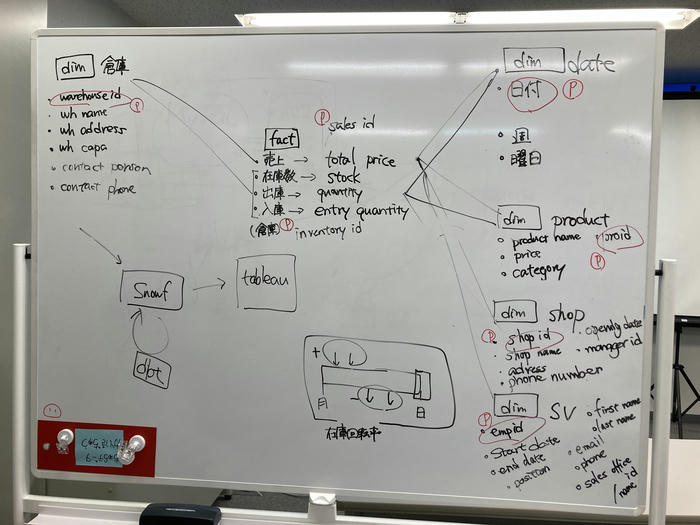 dim 倉庫
warehouse id P
wh name
wh address
wh capa
contact person
contact phone
fact P sales id
売上 → total price
在庫数 → stock
出庫 → quantity
入庫 → entry quantity
(倉庫) P inventory id
dim date
日付 P
週
曜日
dim product
product name
proid
price P
category
dim shop
P shop id
opening date
shop name
manager id
adress
phone number
dim SV
P empid
start date
end date
position
first name
last name
email
phone
sales office
id
/ name
Snowf → tableau
dbt
+
-
月 日
在庫回転率